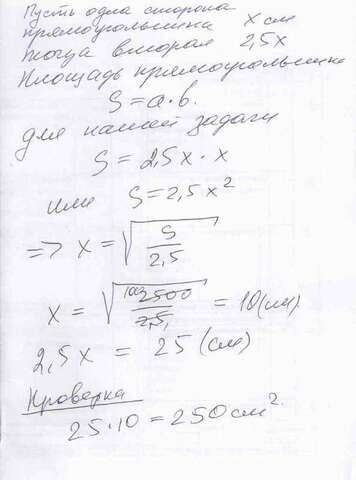 Пусть одна сторона
прямоугольника x см
тогда вторая 2,5x
Площадь прямоугольника
S = a·b.
для нашей задачи
S = 2,5x · x
или S = 2,5x²
=> x = √(S/2,5)
x = √(2500/2,5) = 10 (см)
2,5x = 25 (см)
Проверка
25·10 = 250 см².